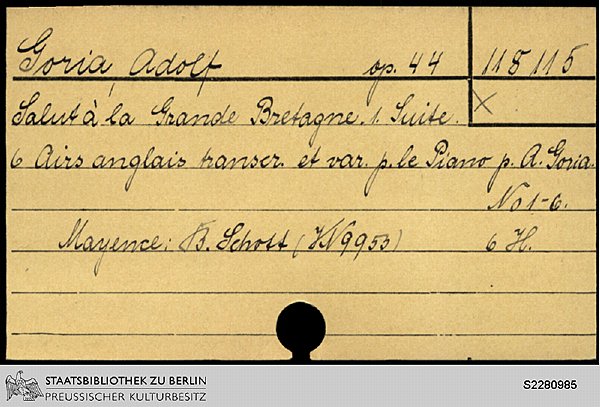 Goria, Adolf op. 44 118 115
Salut à la Grande Bretagne. 1. Suite. X
6 Airs anglais transcr. et var. p. le Piano p. A. Goria.
No 1-6.
Mayence: B. Schott (VN 9953) 6 H.
STAATSBIBLIOTHEK ZU BERLIN
PREUSSISCHER KULTURBESITZ
S2280985